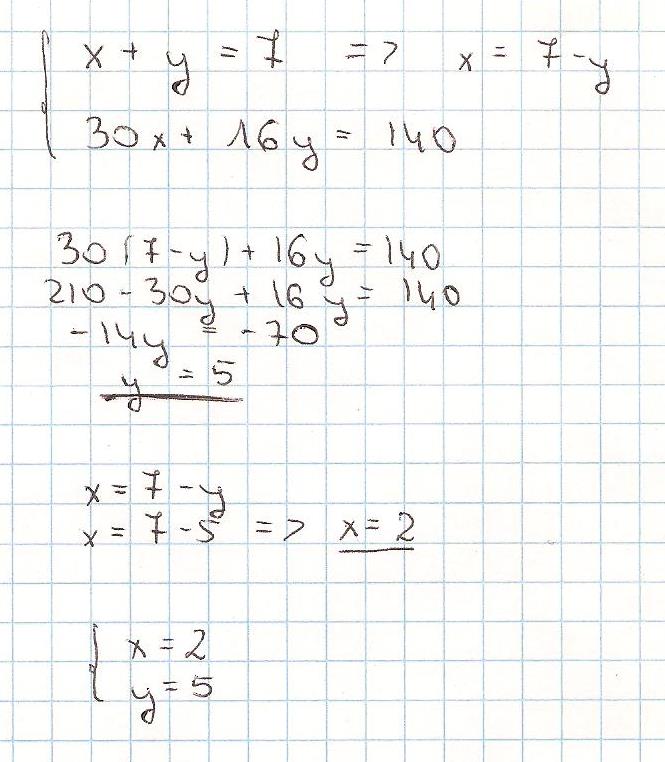 x + y = 7 => x = 7 - y
30x + 16y = 140
30(7-y) + 16y = 140
210 - 30y + 16y = 140
-14y = -70
y = 5
x = 7 - y
x = 7 - 5 => x = 2
x = 2
y = 5